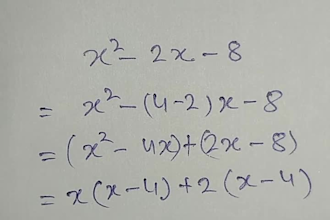 x² - 2x - 8
= x² - (4-2)x - 8
= (x² - 4x) + (2x - 8)
= x(x-4) + 2(x-4)